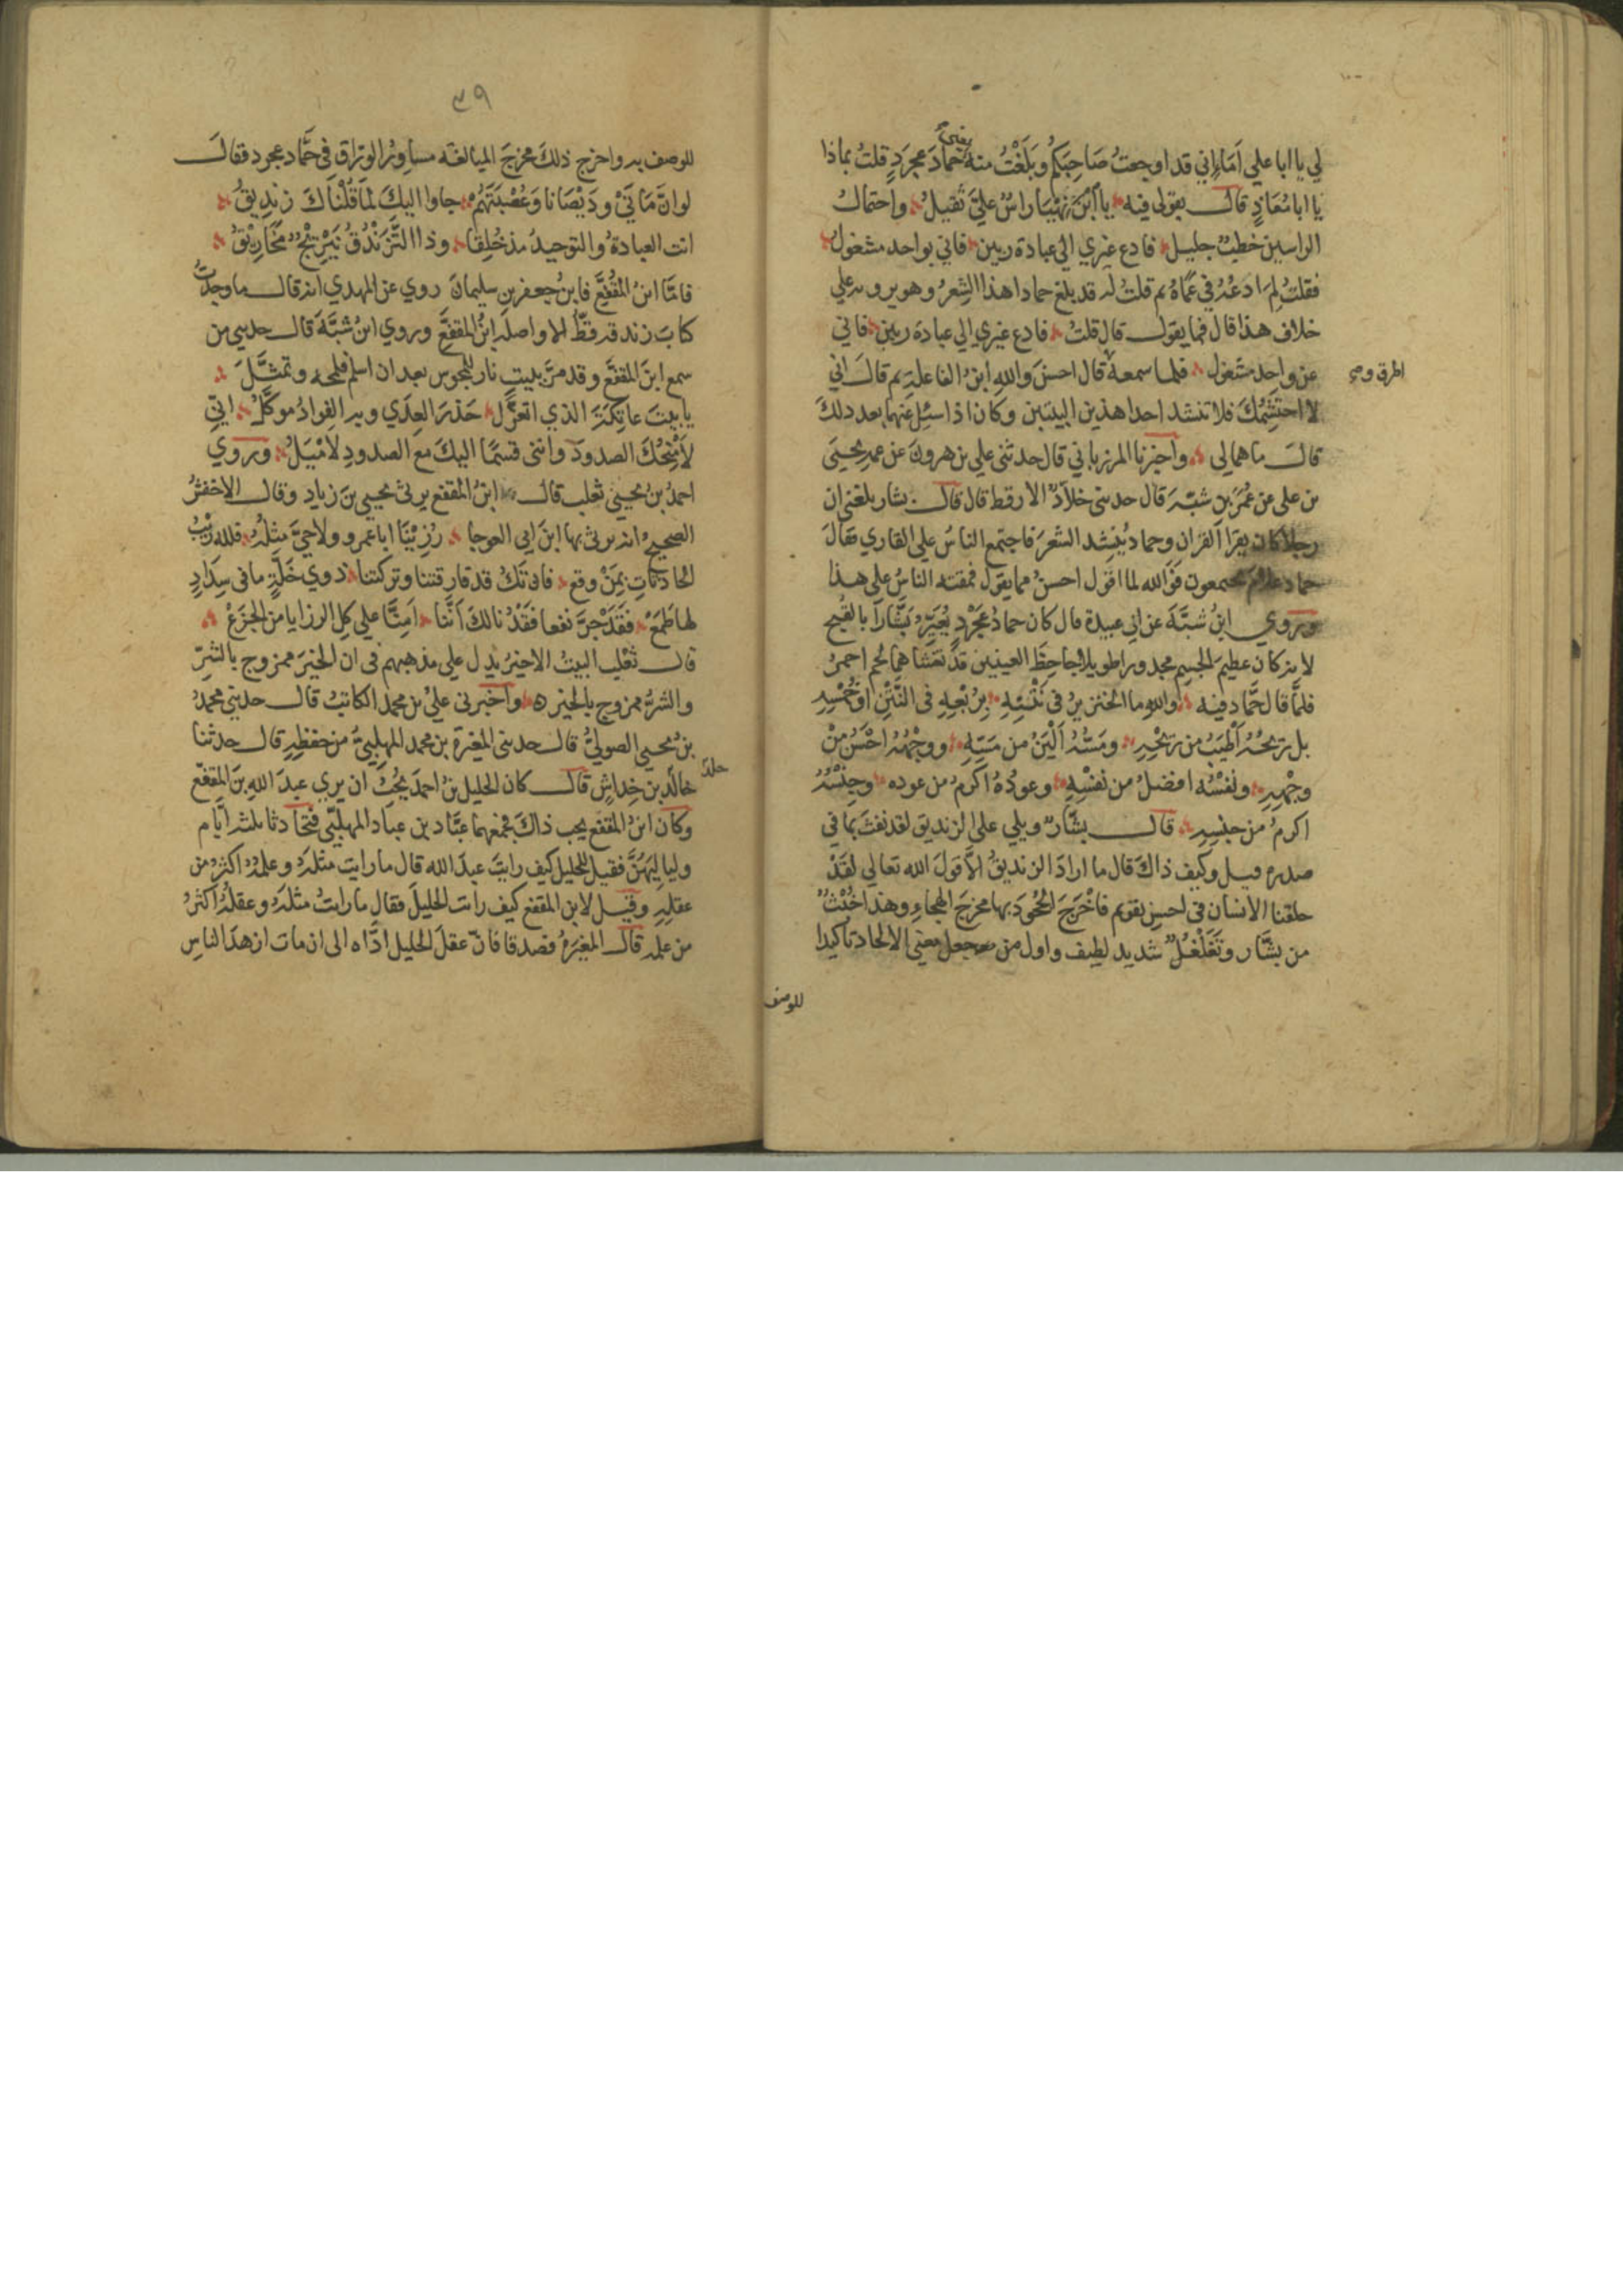 لي يا ابا علي اَمَا اِني قد اوجعتُ صَاحِبَكُم وبَلَغْتُ منه يعني حمادَ عجردٍ قلتُ بماذا
يا ابا مُعَاذٍ قال بقولى فيه يا اَبْنَ نِهْيَا راسٌ عليَّ ثقيلُ واحتمالُ
الراسين خطبٌ جليل فادع غيري الي عبادة ربين فاني بواحد مشغولُ
فقلتُ لِمَ ادَعْهُ في عَمَاهُ ثم قلتُ له قد بلغ حمادا هذا الشِعرُ وهو يرويه علي
خلاف هذا قال فما يقول قال قلتُ فادع غيري الي عبادة ربين فاني
عن واحد مشغول فلما سمعه قال احسنَ واللهِ ابنُ الفاعلة ثم قالَ اني
لا احتشِمُكَ فلا تنشد احدا هذين البيتين وكان اذا سئل عنهما بعد ذلكَ
قالَ ما هما لي واخبرنا المرزباني قال حدثني علي بن هرون عن عمه يحيَى
بن على عن عُمَرَ بن شبّه قال حدثنى خلادٌ الارقط قال قال بشار بلغني ان
رجلا كان يقرا القران وحماد يُنشِد الشعرَ فاجتمع الناسُ علي القاري فقالَ
حماد علامَ تجتمعون فوالله لما اقول احسنُ مما يقول فمقته الناسُ علي هذا
وروي ابنُ شبَّةَ عن ابي عبيدة قال كان حمادُ عَجْرَدٍ يُعَيِّرُ بَشَّاراً بالقُبح
لانه كان عظيمَ الجسم مجدورا طويلا جاحظَ العينين قد تغشاهما لحم احمرُ
فلمَّا قال حَمَّاد فيه واللهِ ما الخنزيرُ في نَتْنِهِ بِرُبْعِهِ في النَّتْنِ اوخُمْسِهِ
بل ريحُهُ اَطْيَبُ من رِيْحِهِ ومَسُّهُ اَلْيَنُ من مَسِّهِ ووجْهُهُ احْسَنُ مِنْ
وجْهِهِ ونفْسُهُ افضلُ من نفْسِهِ وعودُهُ اكرمُ من عوده وجِنْسُهُ
اكرمُ من جنْسِهِ قال بشَّارٌ ويلي علي الزنديق لقد نفثَ بما في
صدره قيل وكيف ذاكَ قال ما ارادَ الزنديقُ الاَّ قولَ الله تعالي لقَدْ
خلقنا الانسان في احسن تقويم فاخْرَجَ الجُحُودَ بها مخرجَ الهجاءِ وهذا خُبْثٌ
من بشَّار وتَغَلْغُلٌ شديد لطيف واول من جعل معني الالحاد تاكيدا
للوصف
٣٩
للوصف به واخرج ذلك مخرجَ المبالغه مساورُ الورّاق في حَمَّاد عجرد فقالَ
لو انَّ مَانَيْ ودَيْصَانا وَعُصْبَتَهُمْ جاوا اليكَ لمَا قُلْنَاكَ زنديقُ
انت العبادةُ والتوحيدُ مذ خُلِقَا وذا التَّزَنْدُقُ نَيْرِنْجٌ مَخَارِيْقُ
فامّا ابنُ المُقَفَّع فابنُ جعفر بن سليمانَ روي عن المهدي انه قال ما وجدتُ
كتابَ زندقه قطُّ الا واصلُه ابنُ المقفَّع وروي ابنُ شبَّةَ قال حدثني من
سمع ابنَ المقفَّع وقد مرَّ ببيتِ نار للمجوس بعد ان اسلم فلمحه وتمثَّلَ
يا بيتَ عاتِكَةَ الذي اتعزَّل حَذَرَ العِدَي وبه الفواد موكَّلُ اِنِّي
لاَمْنِحُكَ الصدودَ واننى قسمًا اليكَ معَ الصدودِ لاَمْيَلُ وروي
احمدُ بنُ يحيي ثعلب قال ابنُ المقفع يرثى يحيي بنَ زياد وقال الاخفشُ
الصحيحُ انه يرثى بها ابنَ ابي العوجا رُزِيْنَا ابا عمرو ولا حيَّ مثلُهُ فلله رَيْبُ
الحادثاتِ بِمَنْ وقع فان تَكُ قد فارقتنا وتركتنا ذوي خَلَّةٍ ما في سِدَادٍ
لها طَمَعْ فقَدْ جرَّ نفعا فَقْدُنا لكَ اَنَّنا اَمِنَّا علي كل الرزايا من الجَزَعْ
قال ثعْلب البيتُ الاخيرُ يدل علي مذهبهم في ان الخيرَ ممزوج بالشرّ
والشرُّ ممزوج بالخير واخبرنى عليُّ بن محمد الكاتبُ قال حدثني محمدُ
بنُ يحيى الصوليُّ قال حدثنى المغيرةُ بن محمد المهلبيُّ من حفظِهِ قال حدثنا
خالد بن خِداش قال كان الخليل بنُ احمدَ يُحِبُّ ان يري عبدَ اللهِ بنَ المقفع
وكان ابنُ المقفع يحب ذاكَ فجمعهما عبَّاد بن عباد المهلبّي فتحَادثا ثلثة ايَّام
ولياليَهُنَّ فقيل للخليل كيف رايتَ عبدَ الله قال ما رايت مثلَهُ وعلمُهُ اكثرُ من
عقلِهِ وقيل لابن المقفع كيف رايت الخليلَ فقال ما رايتُ مثلَهُ وعقلُهُ اكثرُ
من علمه قال المغيرةُ فصدقا فانّ عقلَ الخليل ادَّاه الى ان مات ازهدَ الناسِ